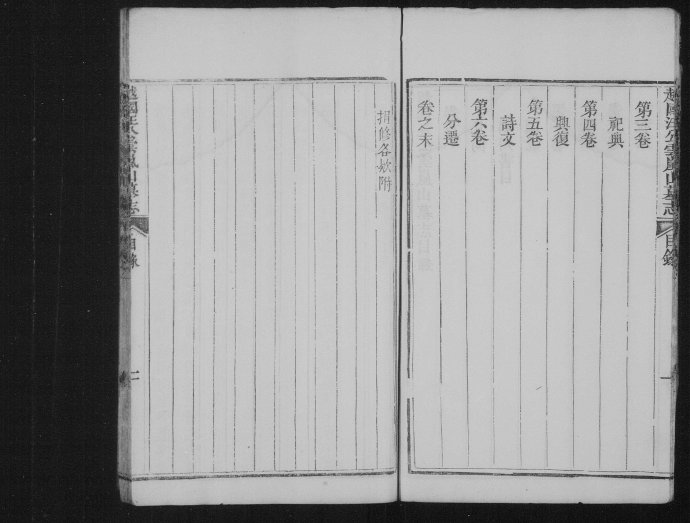 第三卷
祀典
第四卷
興復
第五卷
詩文
第六卷
分遷
卷之末
捐修各欵附
越國汪公雲嵐山墓志
目錄
一
越國汪公雲嵐山墓志
目錄
二